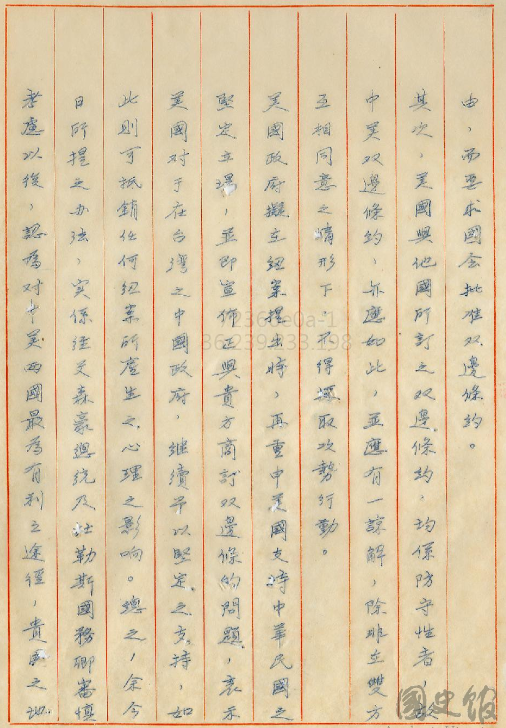 由，而要求國会批准双邊條約。
其次，美國與他國所訂之双邊條約，均係防守性者，故
中美双邊條約，亦應如此，並應有一諒解，除非在雙方
互相同意之情形下，不得採取攻勢行動。
美國政府擬在紐案提出時，再重申美國支持中華民國之
堅定立場，並即宣佈正與貴方商討双邊條約問題，表示
美國对于在台灣之中國政府，继續予以堅定之支持，如
此則可抵銷任何紐案所產生之心理之影响。總之，余今
日所提之办法，实係经艾森豪總統及杜勒斯國務卿審慎
考慮以後，認為对中美兩國最為有利之途徑，貴國之地
國史館